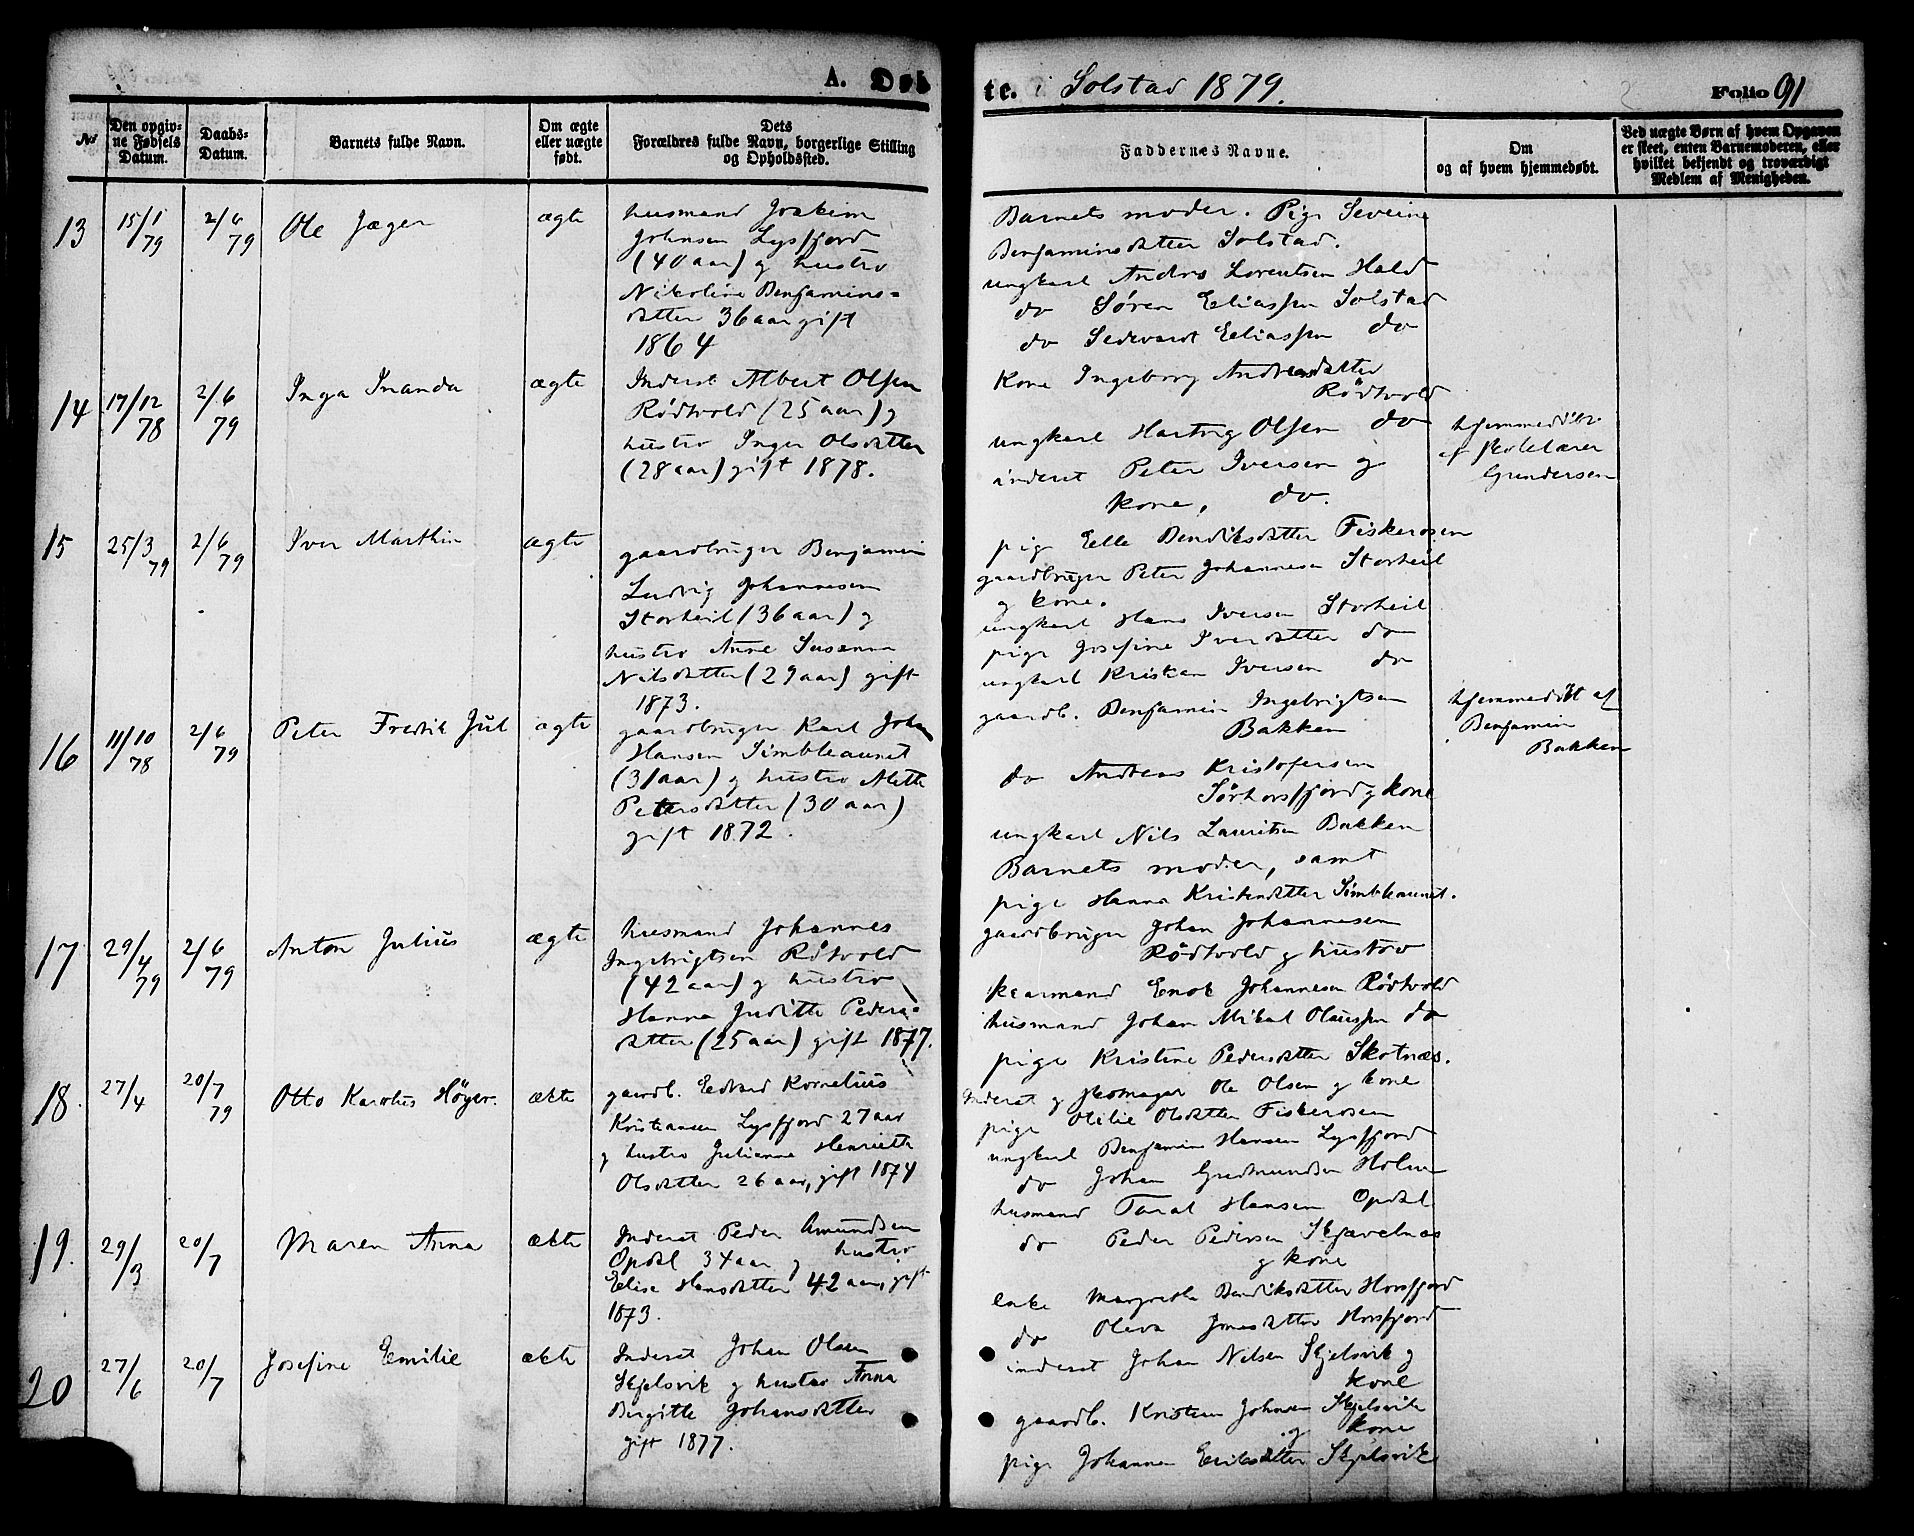 A. Døbte. i Solstad 1879. Folio 91
No
Den opgivne Fødsels Datum.
Daabs-Datum.
Barnets fulde Navn.
Om ægte eller uægte født.
Dets Forældres fulde Navn, borgerlige Stilling og Opholdssted.
Faddernes Navne.
Om og af hvem hjemmedøbt.
Ved uægte Børn af hvem Opgaven er skeet, enten Barnemoderen, eller hvilket bekjendt og troværdigt Medlem af Menigheden.
13
15/1 79
2/6 79
Ole Jæger
ægte
husmand Joakim
Johnsen Lysfjord
(40 aar) g hustro
Nikoline Benjamins=
datter 36 aar gift
1864
Barnets moder. Pige Severine
Benjaminsdatter Solstad.
ungkarl Andrs Lorentsen Hald
do Søren Eeliassen Solstad
do Sedevart Eeliassen do
14
17/12 78
2/6 79
Inga Inanda
ægte
Inderst Albert Olsen
Rödtvold (25 aar) g
hustro Inger Olsdatter
(28 aar) gift 1878.
Kone Ingeborg Andreasdatter
Rödtvold
ungkarl Hartvig Olsen do
inderst Peter Iversen g
kone, do.
hjemmedöbt
af skolelærer
Gundersen
15
25/3 79
2/6 79
Iver Marthin
ægte
gaardbruger Benjamin
Ludvig Johannesen
Storheil (36 aar) g
hustro Anne Susanna
Nilsdatter (29 aar) gift
1873.
pige Eelle Bendiksdatter Fiskerosen
gaardbruger Peter Johannesen Storheil
g kone.
ungkarl Hans Iversen Storheil
pige Josefine Iversdatter do
ungkarl Kristen Iversen do
16
11/10 78
2/6 79
Peter Fredrik Jul
ægte
gaardbruger Karl Johan
Hansen Simbleaunet
(31 aar) g hustro Mette
Petersdatter (30 aar)
gift 1872.
gaardb. Benjamin Ingebrigtsen
Bakken
do Andreas Kristofersen
Sørhorsfjord g kone
ungkarl Nils Lauritsen Bakken
Barnets moder, samt
pige Hanna Kristendatter Simbleaunet.
hjemmedöbt af
Benjamin
Bakken
17
29/4 79
2/6 79
Anton Julius
ægte
husmand Johannes
Ingebrigtsen Rödtvold
(42 aar) g hustro
Hanna Juditte Peders=
datter (25 aar) gift 1877.
gaardbruger Johan Johannesen
Rödtvold g hustrov
kaarmand Enok Johannesen Rödtvold
husmand Johan Mikal Olaussen do
pige Kristine Pedersdatter Skotnæs.
18.
27/4
20/7 79
Otto Karolus Höyer.
ækte
gaardb. Eedvard Kornelius
Kristiansen Lysfjord 27 aar
g hustro Julianna Henriette
Olsdatter 26 aar, gift 1874
Inderst g skomager Ole Olsen g kone
pige Otilie Olsdatter Fiskerosen
ungkarl Benjamin Hansen Lysfjord
do Johan Gudmundsen Holm
19.
29/3
20/7
Maren Anna
ækte
Inderst Peder Amundsen
Opdal 34 aar g hustro
Eelise Hansdatter 42 aar, gift
1873.
husmand Taral Hansen Opdal
do Peder Pedersen Skjævelnæs
g kone
enke Margrethe Bendiksdatter Horsfjord
do Oleva Jonasdatter Horsfjord
20
27/6
20/7
Josefine Eemilie
ækte
Inderst Johan Olsen
Skjelsvik g hustro Anna
Birgitte Johansdatter
gift 1877.
inderst Johan Nilsen Skjelsvik g
kone
gaardb. Kristen Johnsen Skjelsvik
g kone
pige Johanna Eeriksdatter Skjelsvik